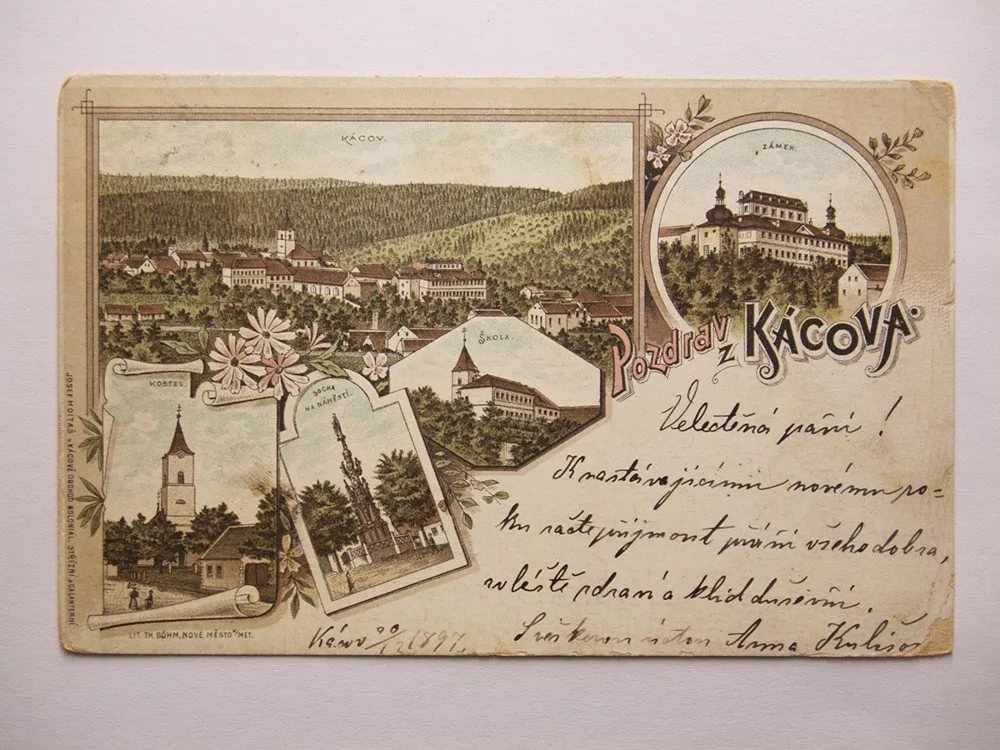 KÁCOV.
ZÁMEK.
Pozdrav z KÁCOVA.
ŠKOLA.
KOSTEL.
SOCHA
NA NÁMĚSTÍ.
Velectěná paní!
K nastávajícímu novému ro-
ku račte přijmout přání všeho dobra,
zvláště zdraví a klid duševní.
S veškerou úctou Anna
Kácov 1897.
JOSEF MOLTAŠ v KÁCOVĚ OBCHOD KOLONIAL. STŘIŽNÍ A GALANTERNÍ
LIT. TH. BÖHM, NOVÉ MĚSTO N/MET.